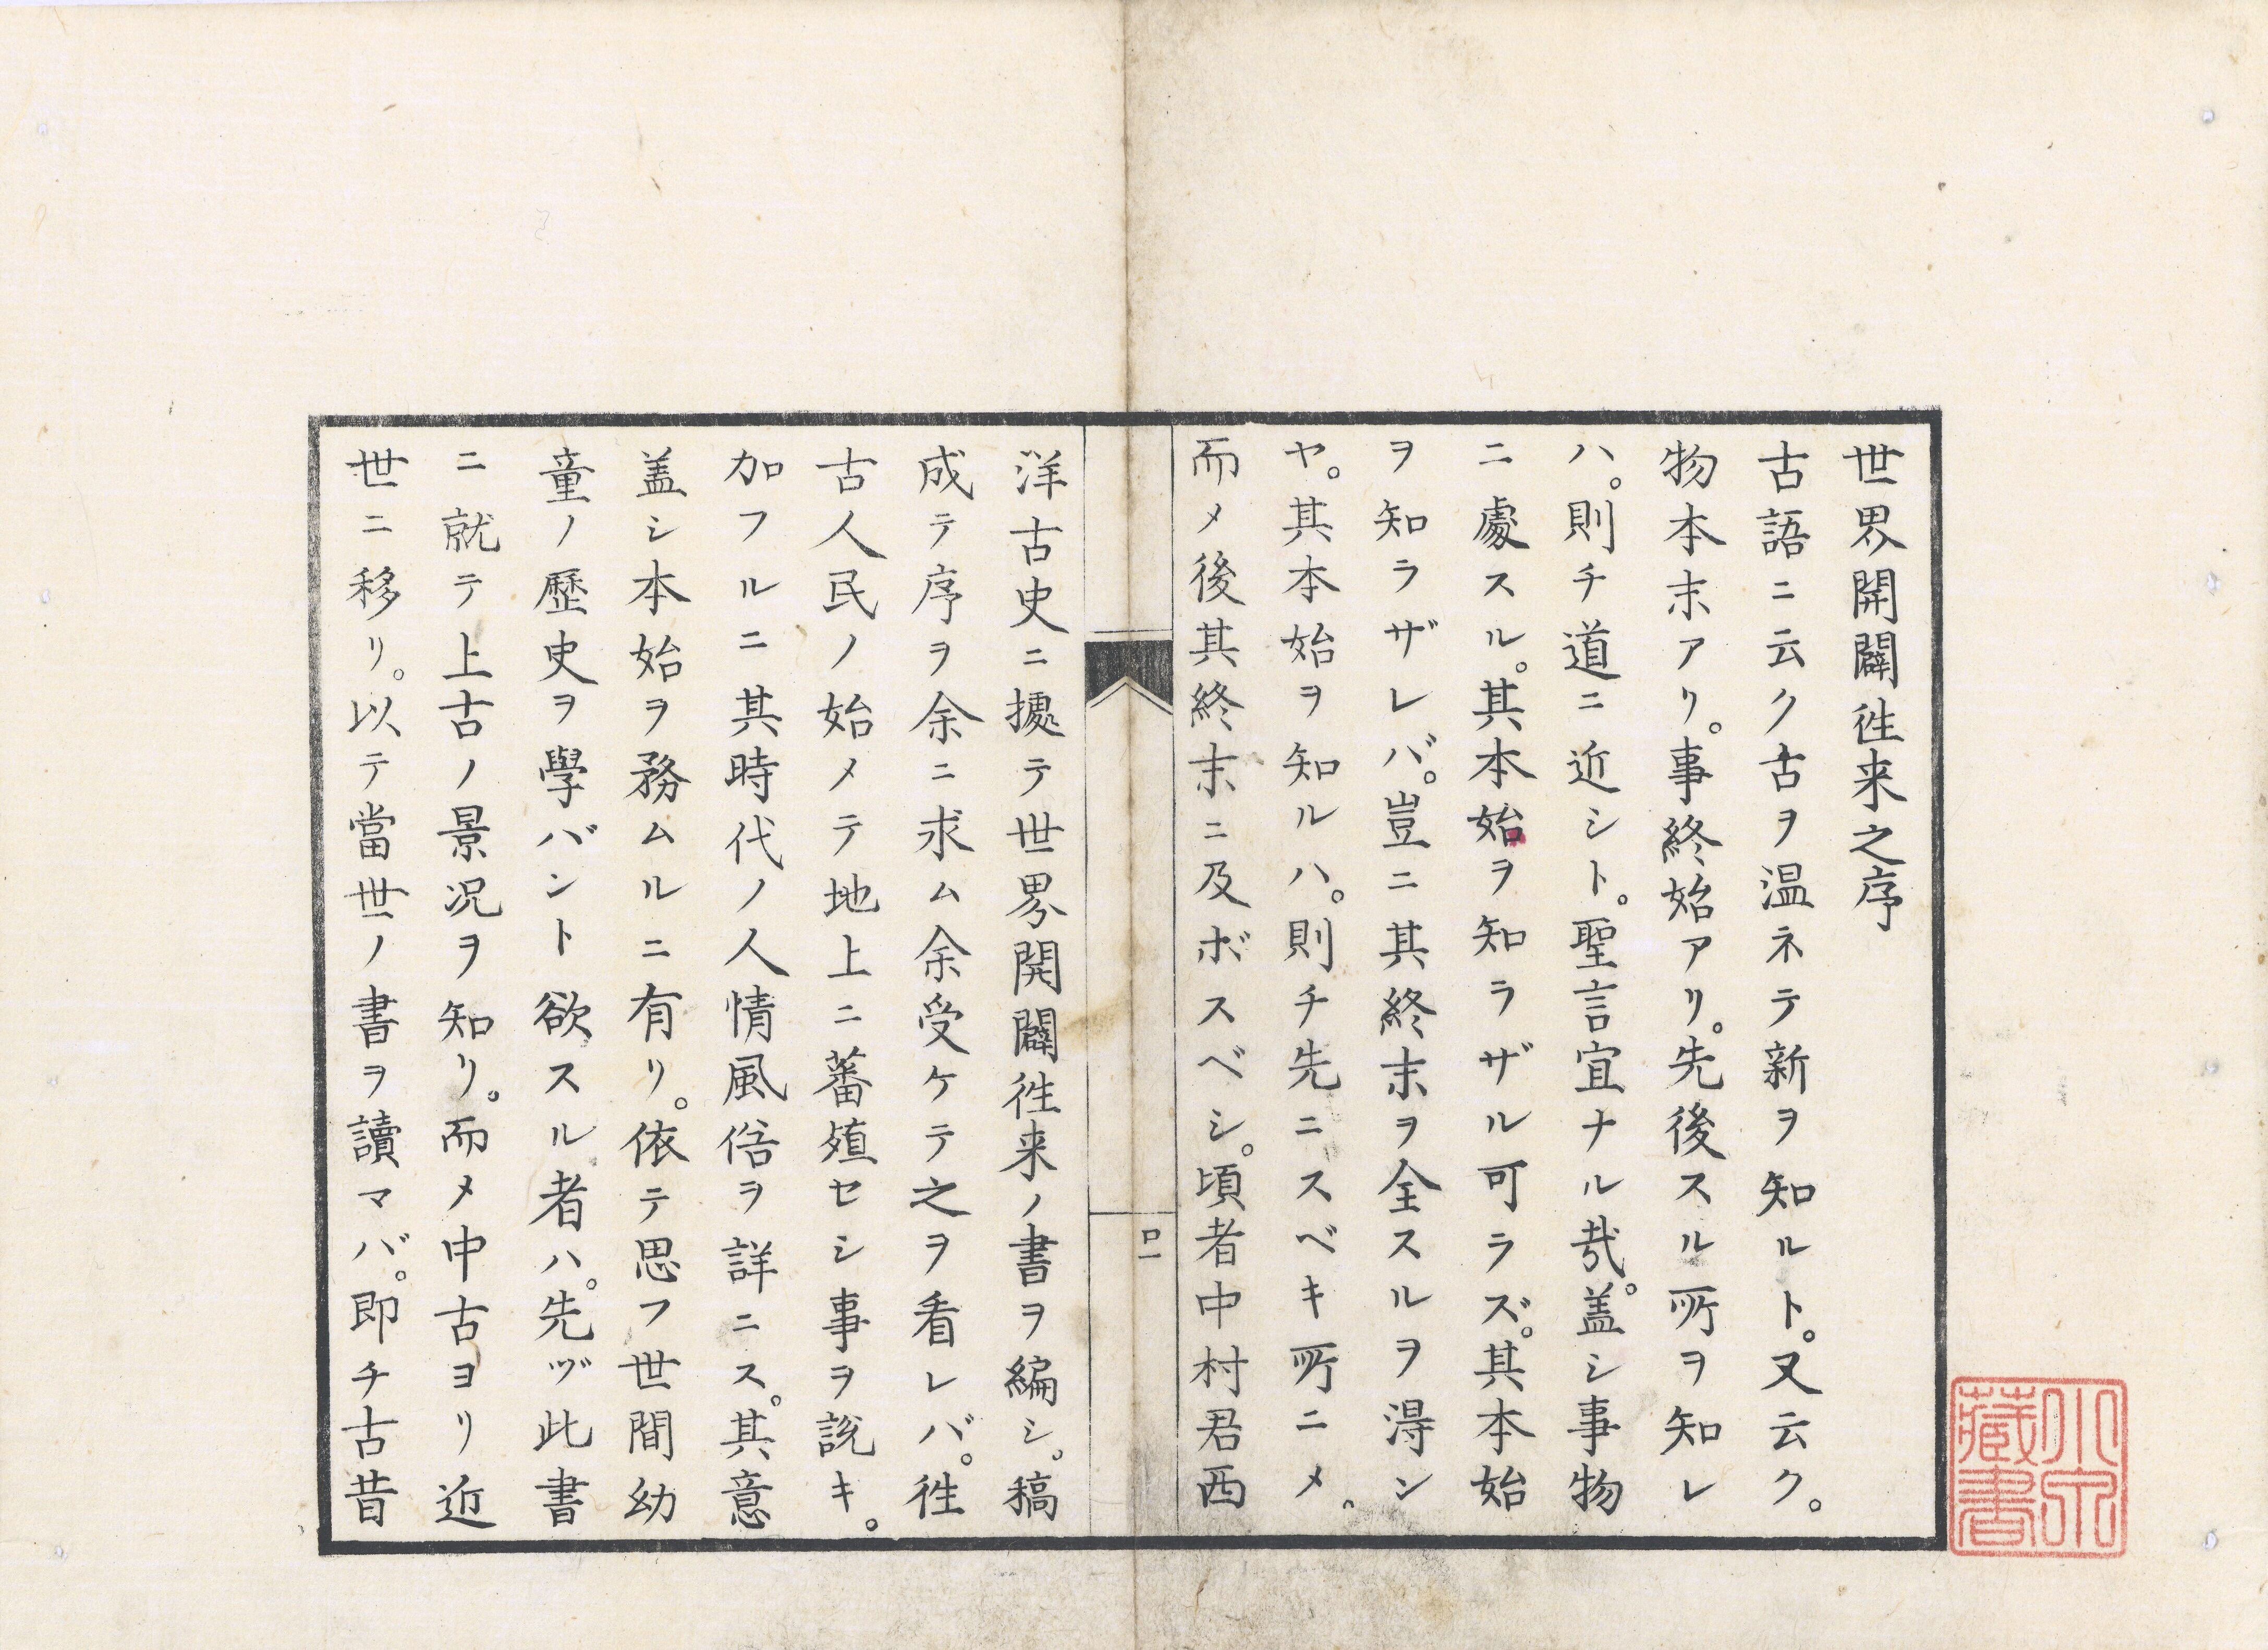 世界開闢徃来之序
古語ニ云ク古ヲ温ネテ新ヲ知ルト。又云ク。
物本末アリ。事終始アリ。先後スル所ヲ知レ
ハ。則チ道ニ近シト。聖言宜ナル哉。盖シ事物
ニ處スル。其本始ヲ知ラザル可ラズ。其本始
ヲ知ラザレバ。豈ニ其終末ヲ全スルヲ淂ン
ヤ。其本始ヲ知ルハ。則チ先ニスベキ所ニメ。
而メ後其終末ニ及ボスベシ。頃者中村君西
洋古史ニ據テ世界開闢徃来ノ書ヲ編シ。稿
成テ序ヲ余ニ求ム余受ケテ之ヲ看レバ。徃
古人民ノ始メテ地上ニ蕃殖セシ事ヲ說キ。
加フルニ其時代ノ人情風俗ヲ詳ニス。其意
盖シ本始ヲ務ムルニ有リ。依テ思フ世間幼
童ノ歷史ヲ學バント欲スル者ハ。先ヅ此書
ニ就テ上古ノ景况ヲ知リ。而メ中古ヨリ近
世ニ移リ。以テ當世ノ書ヲ讀マバ。即チ古昔
口一
小宗
藏書